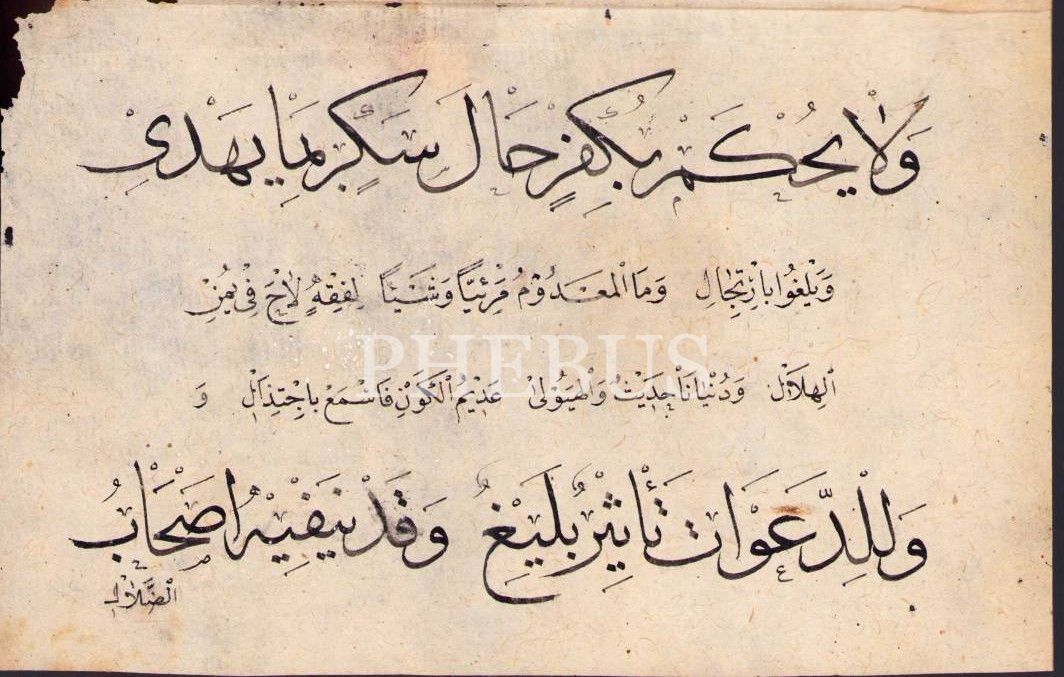 وَلَا يُحْكَمْ بِكُفْرٍ حَالَ سُكْرٍ بِمَا يَهْدِى
وَيَلْغُوا بِارْتِجَالِ وَمَا الْمَعْدُوْمُ مَرْئِيًّا وَشَيْئًا لِفِقْهٍ لَاحَ فِى يُمْنِ
PHEBUS
الْهِلَالِ وَدُنْيَانَا حَدِيْثٌ وَالْهَيُوْلٰى عَدِيْمُ الْكَوْنِ فَاسْمَعْ بِاجْتِذَالِ وَ
وَلِلدَّعَوَاتِ تَأْثِيْرٌ بَلِيْغٌ وَقَدْ يَنْفِيْهِ اَصْحَابُ
الضَّلَالِ